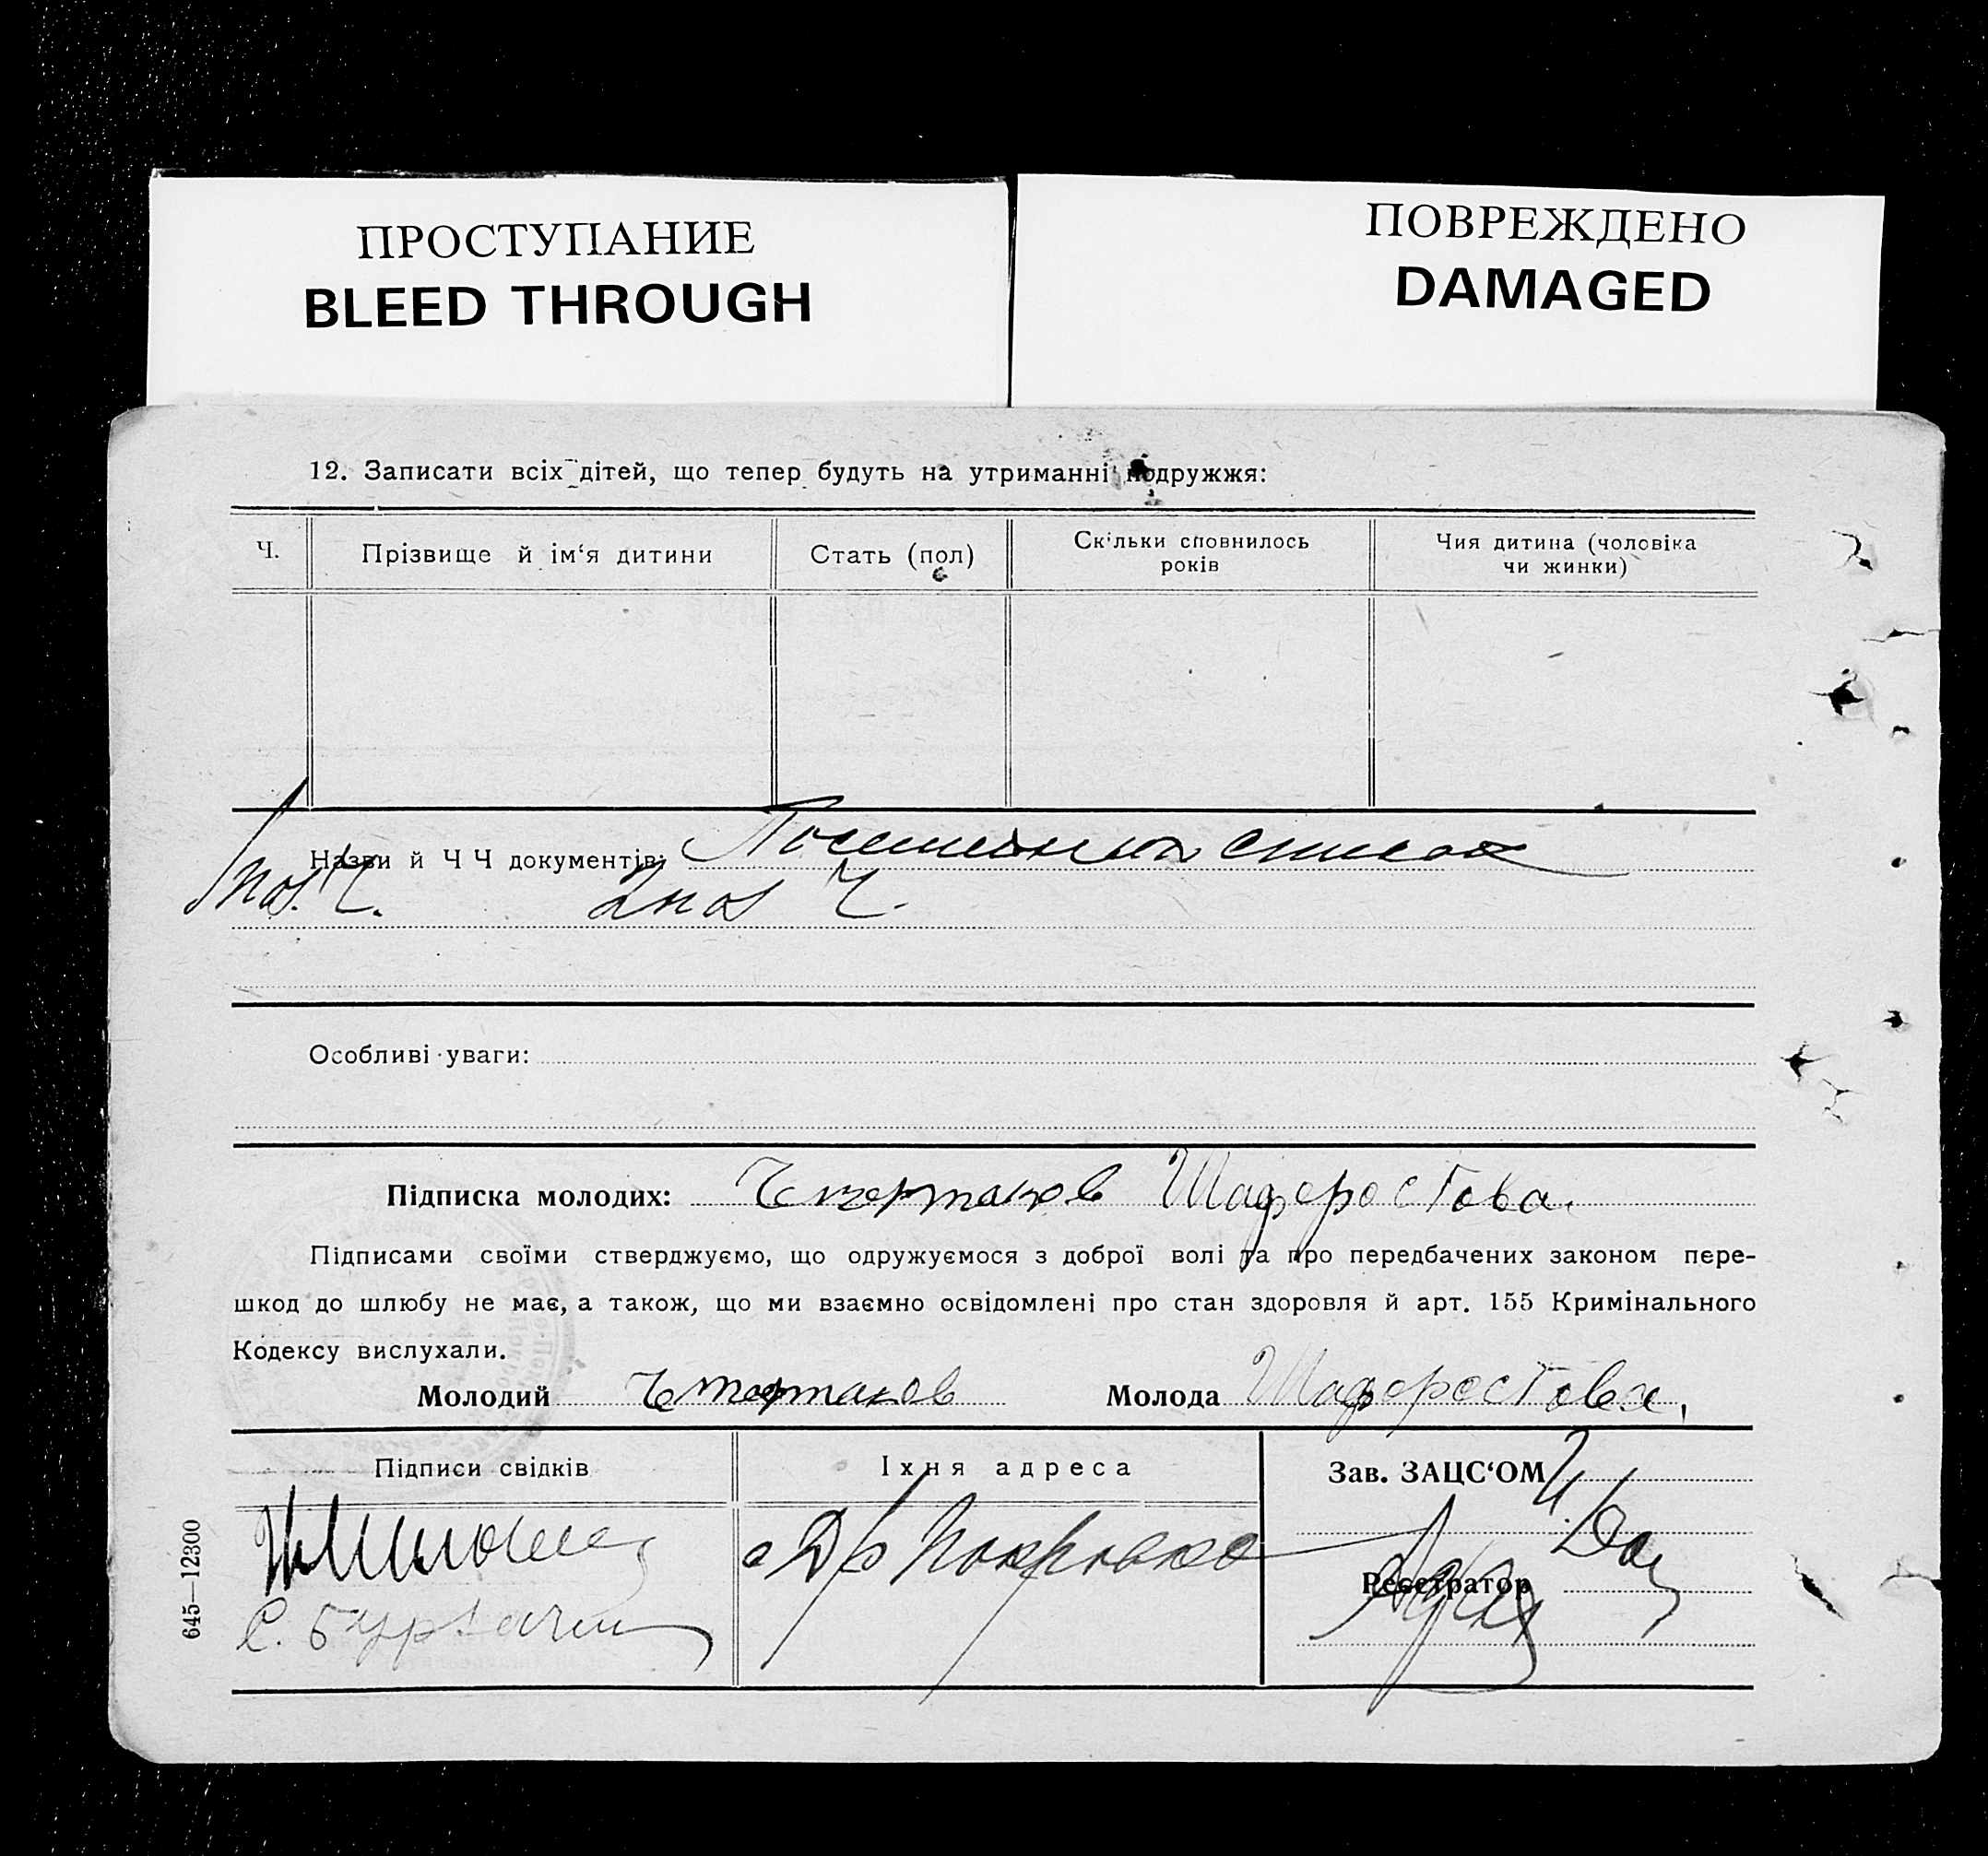 ПРОСТУПАНИЕ
BLEED THROUGH
ПОВРЕЖДЕНО
DAMAGED
12. Записати всіх дітей, що тепер будуть на утриманні подружжя:
Ч.
Прізвище й ім‘я дитини
Стать (пол)
Скільки сповнилось
років
Чия дитина (чоловіка
чи жинки)
Назви й Ч Ч документів: список
Особливі уваги:
Підписка молодих: Шаферостова.
Підписами своїми стверджуємо, що одружуємося з доброї волі та про передбачених законом пере-
шкод до шлюбу не має, а також, що ми взаємно освідомлені про стан здоровля й арт. 155 Кримінального
Кодексу вислухали.
Молодий Молода Шаферостова.
Підписи свідків
Їхня адреса
Зав. ЗАЦС‘ОМ
Покровка
Реєстратор
645—12300